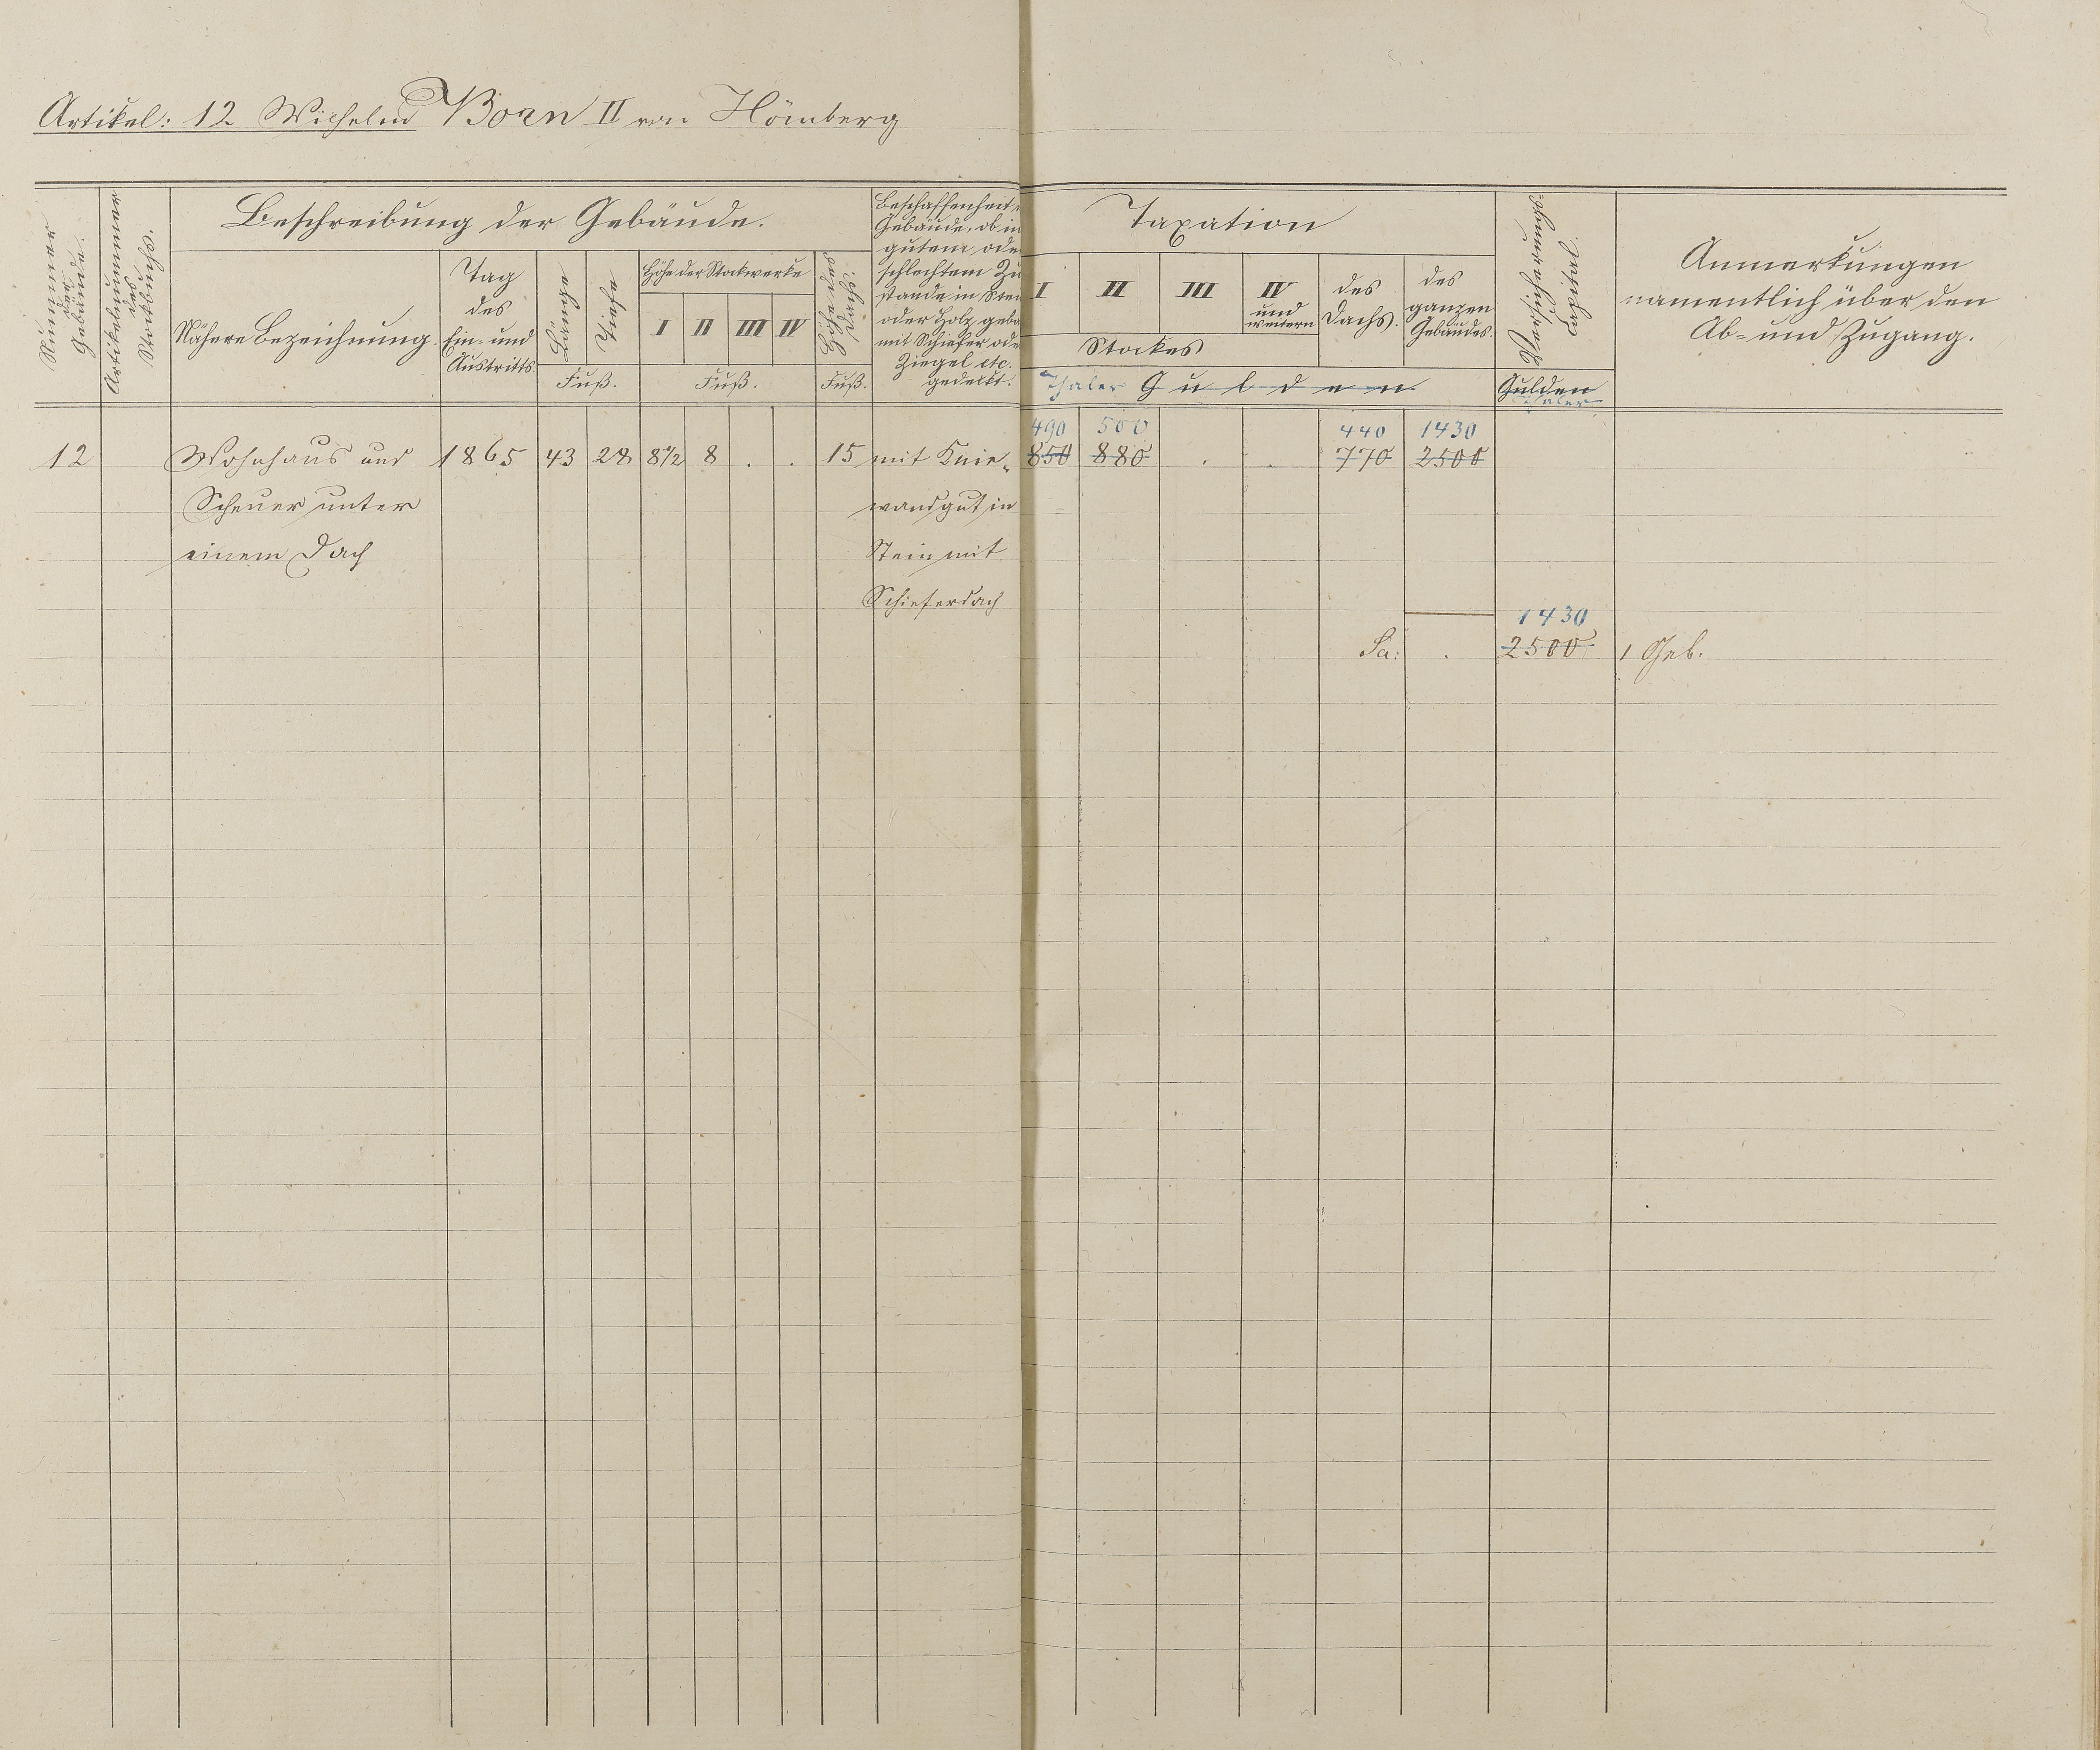 Artikel: 12 Wilhelm Born II von Hömberg
Nummer
der
Gebäude.
Artikelnummer
des
Stockbuchs.
Beschreibung der Gebäude.
Nähere Bezeichnung.
Tag
des
Ein- und
Austritts.
Länge
Tiefe
Fuß.
Höhe der Stockwerke
I II III IV
Fuß.
Höhe des
Dachs.
Fuß.
Beschaffenheit
Gebäude, ob in
gutem ode
schlechtem Zu
stande in Stei
oder Holz geba
mit Schiefer ode
Ziegel etc.
gedeckt.
Taxation
I II III IV
und
weitern
Stockes
des
Dachs.
des
ganzen
Gebäudes.
Thaler Gulden
Versicherungs-
Capital.
Gulden
Thaler
Anmerkungen
namentlich über den
Ab- und Zugang.
490 500 440 1430
12 Wohnhaus und 1865 43 28 8½ 8 . . 15 mit Knie- 850 880 . . 770 2500
Scheuer unter wand gut in
einem Dach Stein mit
Schieferdach
1430
Sa: . 2500 1 Geb.